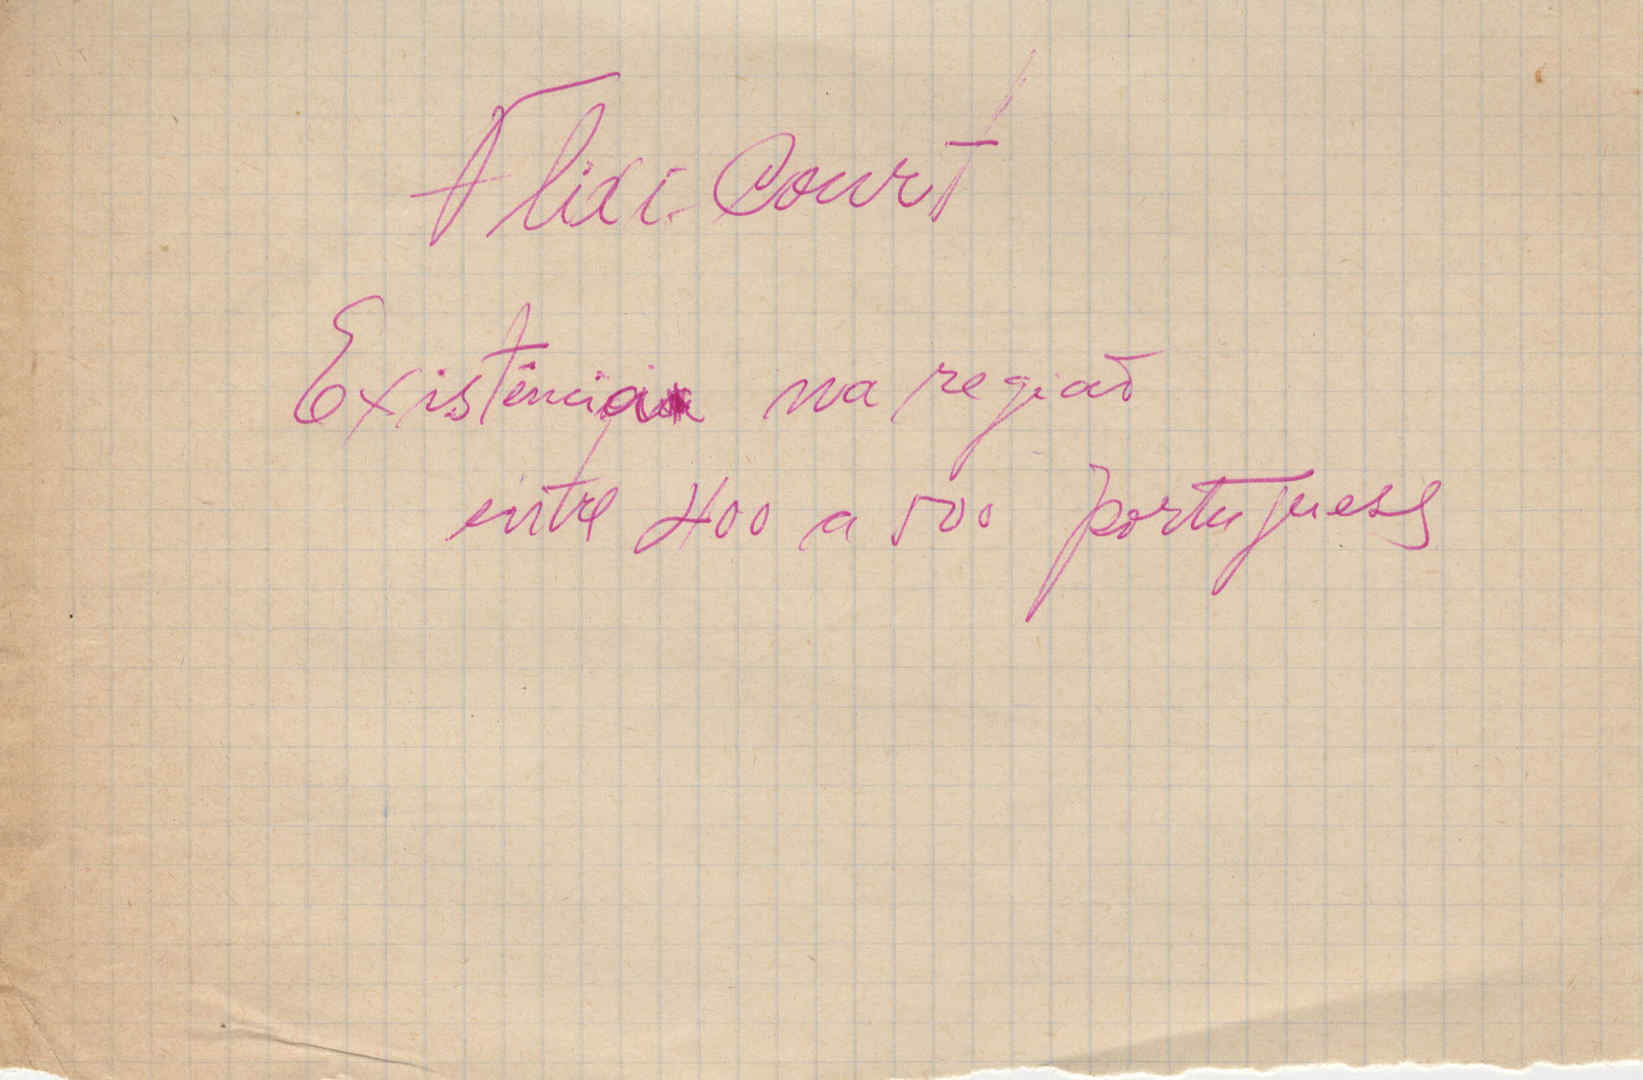 Flixi-Court
Existência na região
entre 400 a 500 portugueses